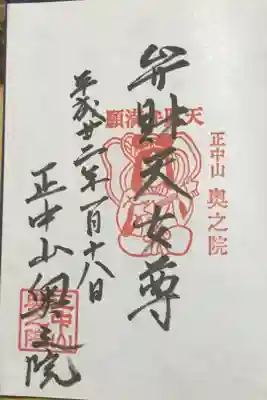 正中山 奥之院
弁財天女尊
平成廿二年一月十八日
正中山奥之院
正中山
奥之院